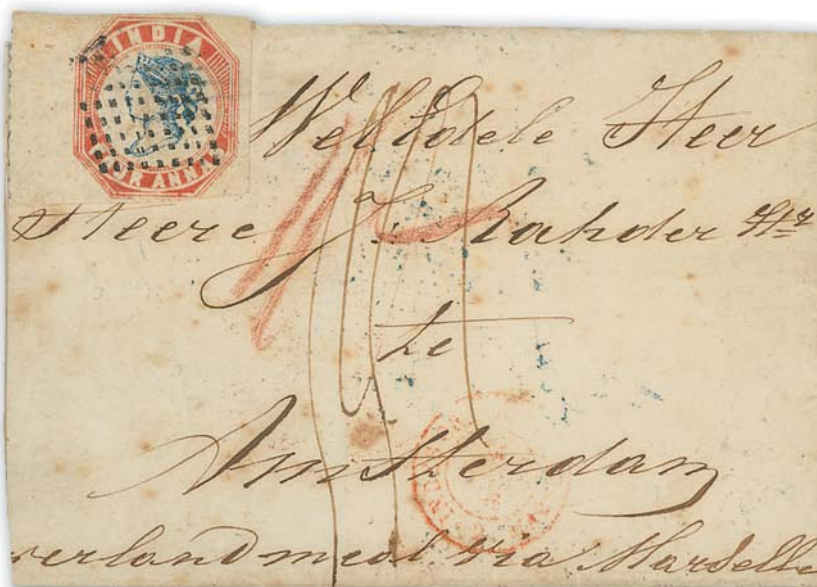 INDIA
FOUR ANNAS
Wel Edele Heer
Heere J. Rahder
te
Amsterdam
overland meal via Marseille